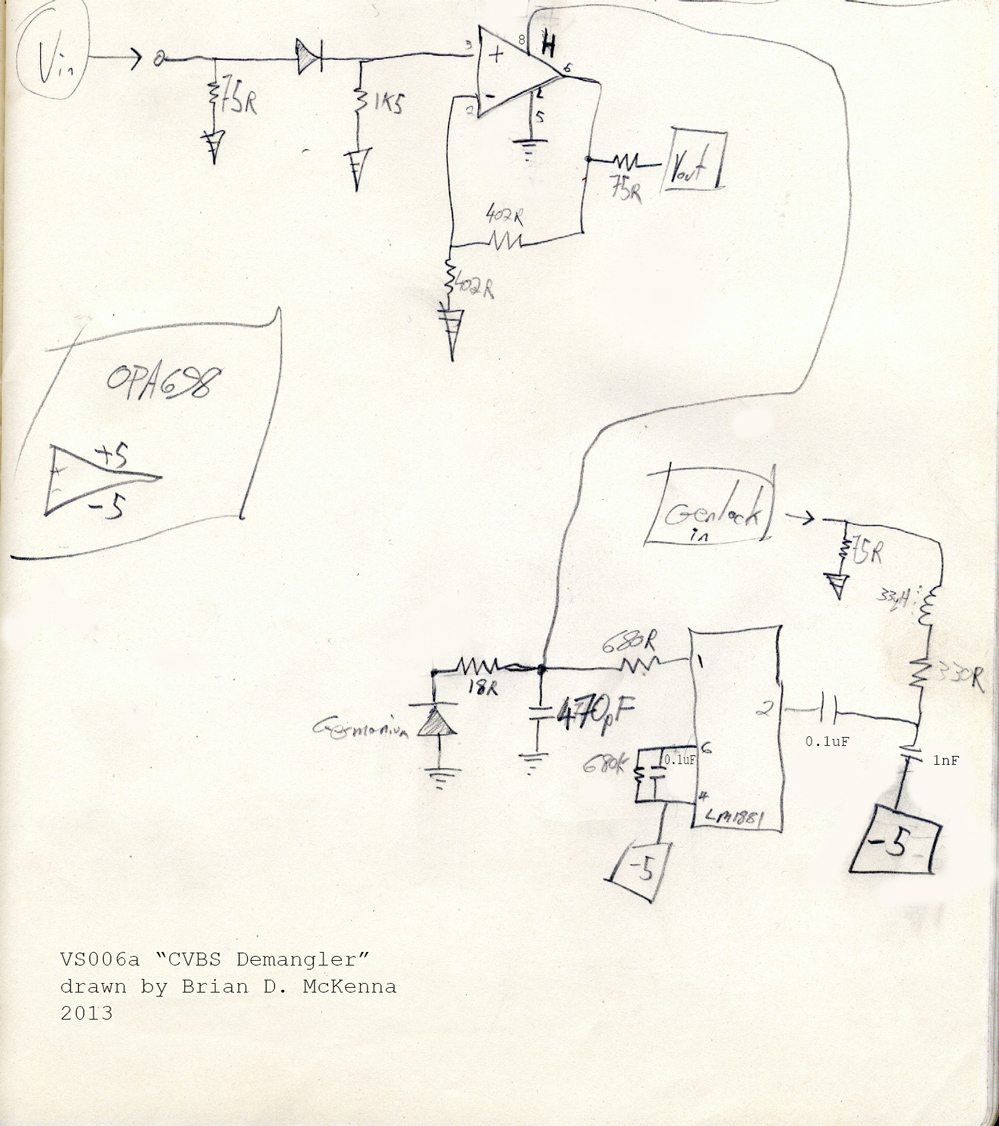 Vin
75R
1K5
3
+
8
H
6
-
2
5
75R
Vout
402R
402R
OPA698
+5
-5
Genlock
in
75R
33µH
330R
680R
1
18R
470pF
2
0.1uF
Germanium
680K
0.1uF
6
4
LM1881
1nF
-5
-5
VS006a “CVBS Demangler”
drawn by Brian D. McKenna
2013